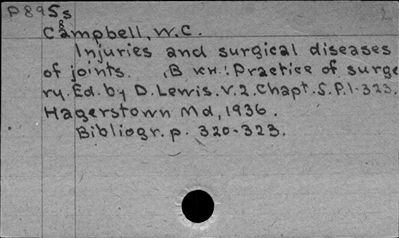 P895s
Campbell, W.C.
Injuries and surgical diseases
of joints. В кн.: Practice of surge
ry. Ed. by D. Lewis. V.2. Chapt. 5. P.1-323.
Hagerstown Md, 1936.
Bibliogr. p. 320-323.